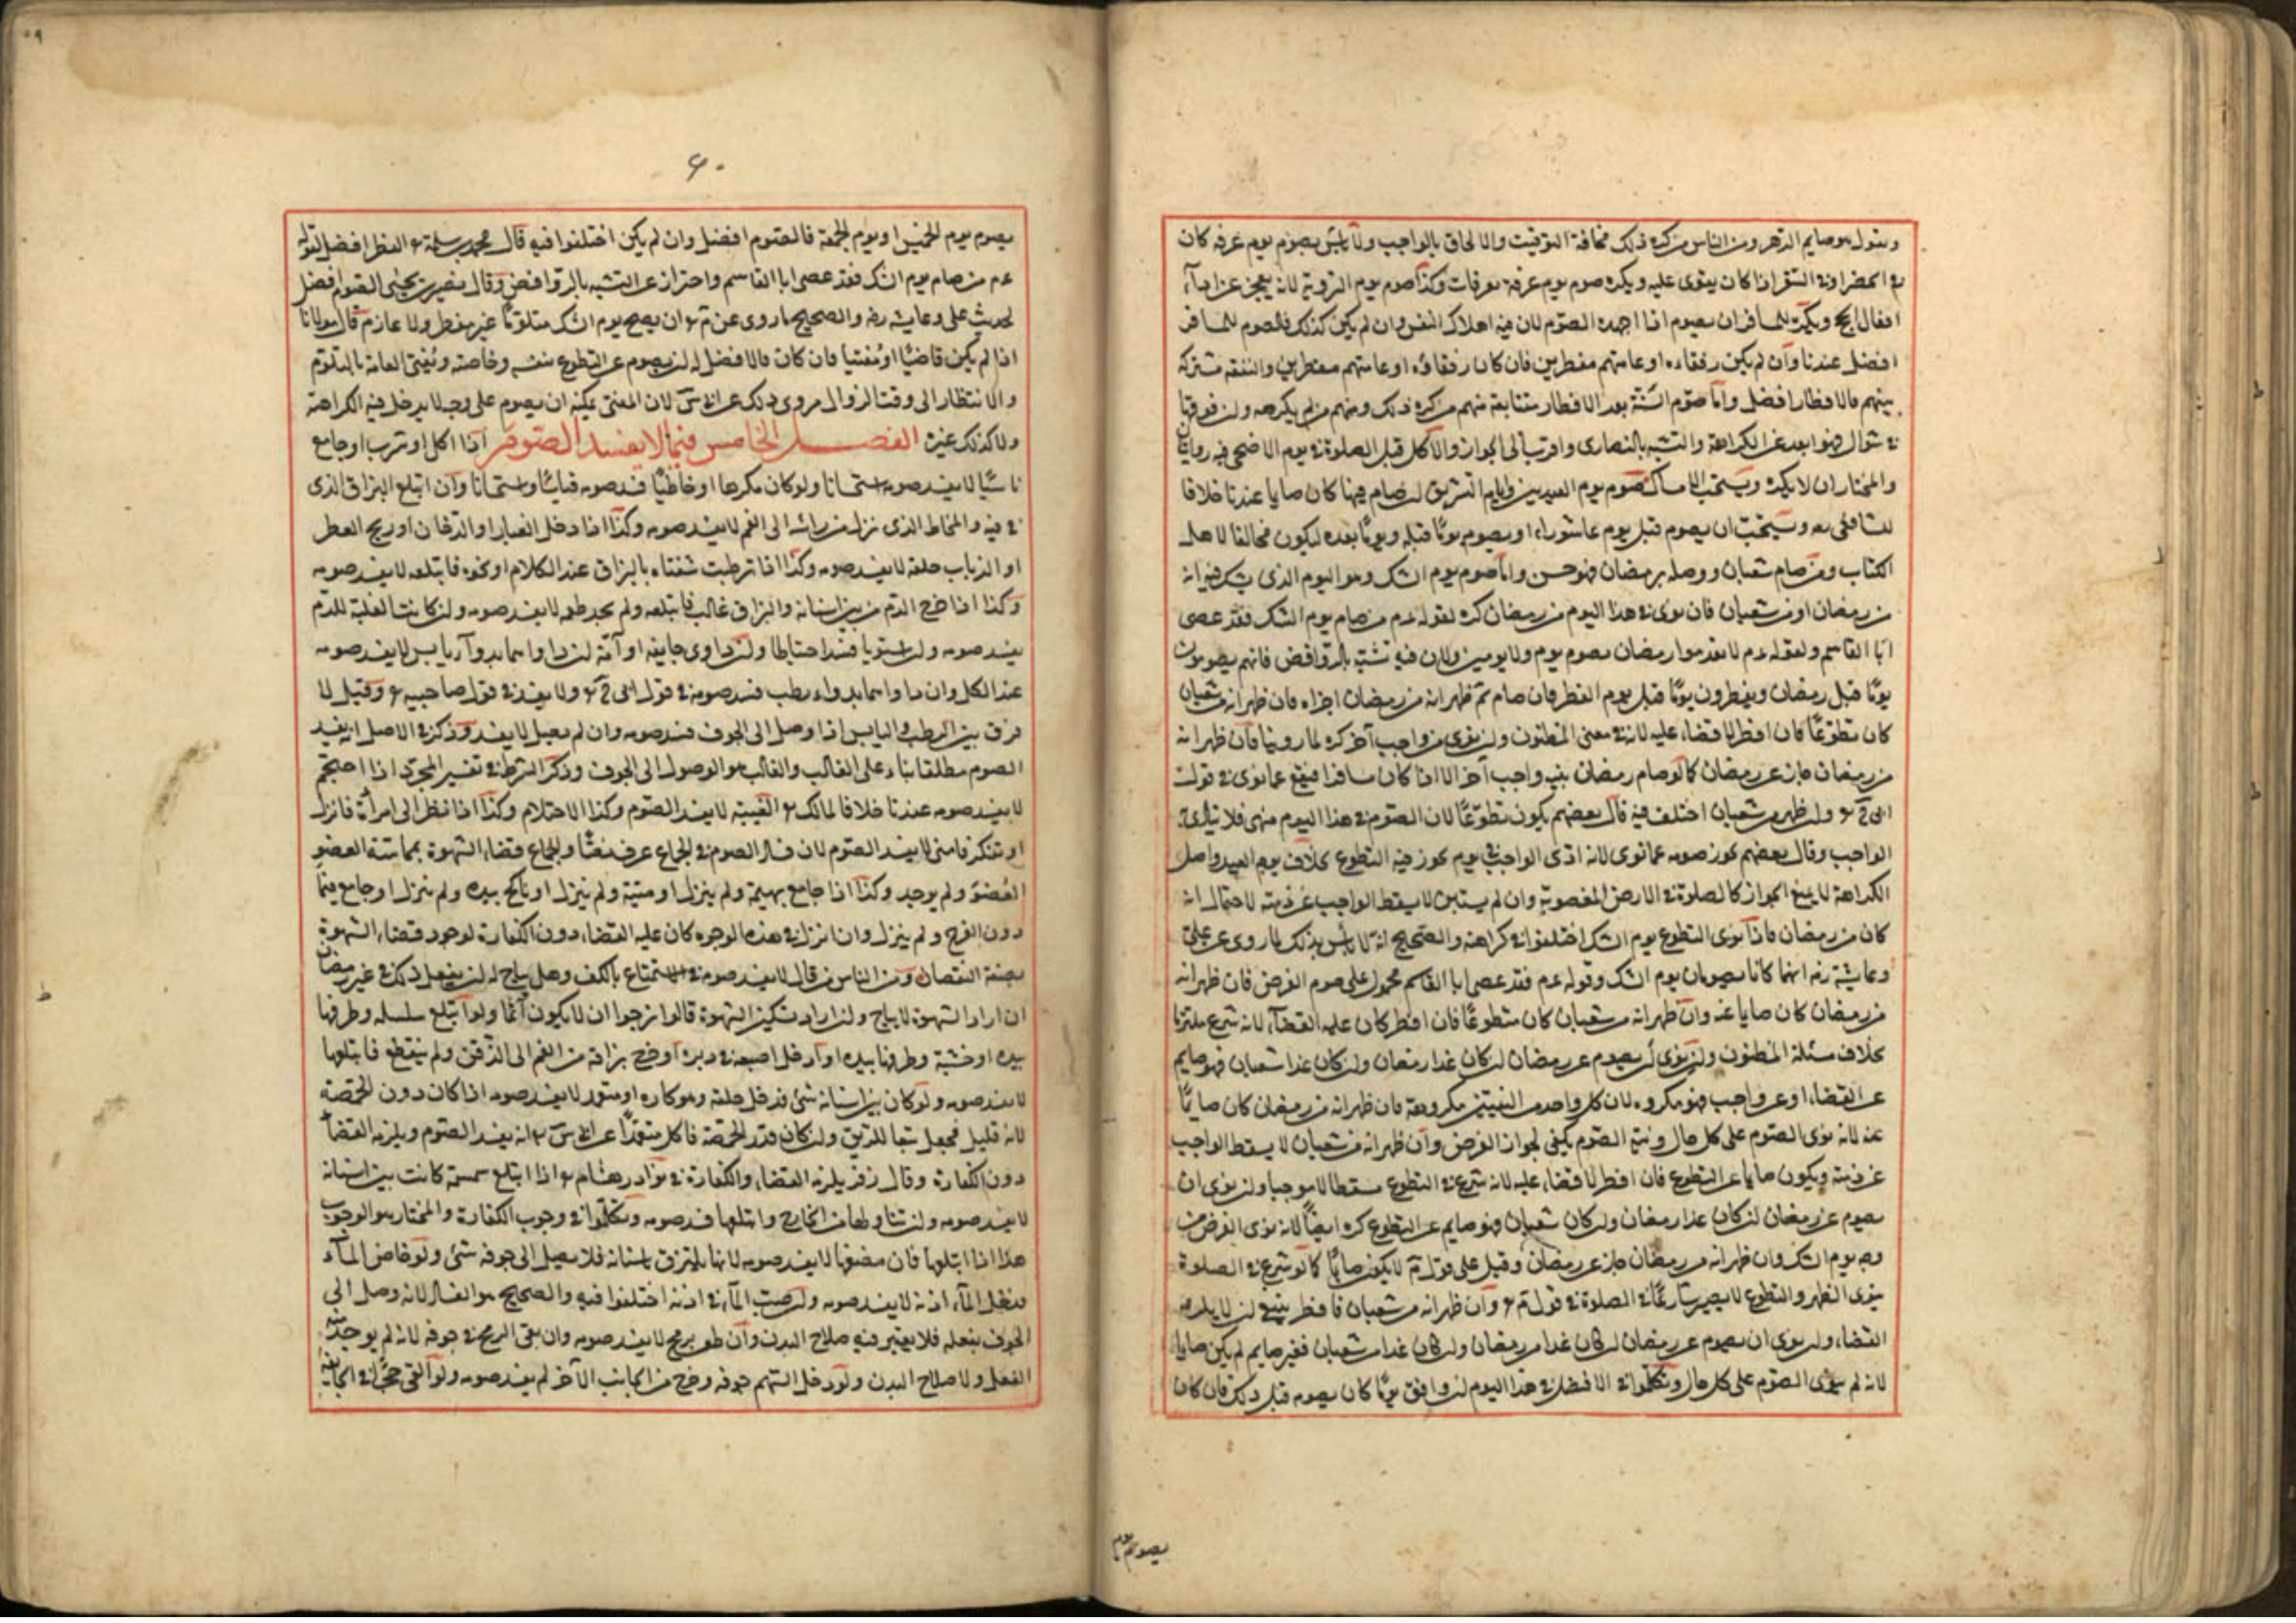 ويقول هو صايم الدهر ومن الناس من كره ذلك مخافة التوقيت والالحاق بالواجب ولا باس بصوم يوم عرفه كان
في الحضر او في السفر اذا كان يقوى عليه ويكره صوم يوم عرفة بعرفات وكذا صوم يوم التروية لانه يعجز عن اداء
افعال الحج ويكره للمسافر ان يصوم اذا اجهده الصوم لان فيه اهلاك النفس وان لم يكن كذلك فالصوم للمسافر
افضل عندنا وان لم يكن رفقاءه او عامتهم مفطرين فان كان رفقاؤه او عامتهم مفطرين والنفقة مشتركة
بينهم فالافطار افضل واما صوم الستة بعد الافطار متتابعة منهم من كره ذلك ومنهم من لم يكرهه وان فرقها
في شوال فهو ابعد عن الكراهة والتشبه بالنصارى واقرب الى الجواز والاكل قبل الصلوة في يوم الاضحى فيه روايتان
والمختار ان لا يكره ويستحب الامساك صوم يوم العيدين وايام التشريق ان صام فيها كان صايما عندنا خلافا
للشافعي ويستحب ان يصوم قبل يوم عاشوراء او يصوم يوما قبله ويوما بعده ليكون مخالفا لاهل
الكتاب ومن صام شعبان ووصله برمضان فهو حسن واما صوم يوم الشك وهو اليوم الذي يشك فيه انه
من رمضان او من شعبان فان نوى في هذا اليوم من رمضان كره لقوله عم من صام يوم الشك فقد عصى
ابا القاسم ولقوله عم لا تقدموا رمضان بصوم يوم ولا يومين ولان فيه تشبه بالروافض فانهم يصومون
يوما قبل رمضان ويفطرون يوما قبل يوم الفطر فان صام ثم ظهر انه من رمضان اجزاه فان ظهر انه من شعبان
كان تطوعا فان افطر لا قضاء عليه لانه في معنى المظنون وان نوى من واجب آخر كره لما روينا فان ظهر انه
من رمضان جاز عن رمضان كما لو صام رمضان بنية واجب آخر الا اذا كان مسافرا فيقع عما نوى في قول
ابي ح وان ظهر من شعبان اختلف فيه قال بعضهم يكون تطوعا لان الصوم في هذا اليوم منهي فلا يتادى به
الواجب وقال بعضهم يجوز صومه عما نوى لانه ادى الواجب في يوم يجوز فيه التطوع بخلاف يوم العيد واصل
الكراهة لا يمنع الجواز كالصلوة في الارض المغصوبة وان لم يستبن لا يسقط الواجب عن ذمته لاحتمال انه
كان من رمضان فاذا نوى التطوع يوم الشك اختلفوا في كراهته والصحيح انه لا باس بذلك لما روى عن علي
وعايشة رضه انهما كانا يصومان يوم الشك وقوله عم فقد عصى ابا القاسم محمول على صوم الفرض فان ظهر انه
من رمضان كان صايما عنه وان ظهر انه من شعبان كان متطوعا فان افطر كان عليه القضاء لانه شرع ملتزما
بخلاف مسئلة المظنون وان نوى ان يصوم عن رمضان ان كان غدا رمضان وان كان غدا شعبان فهو صايم
عن القضاء او عن واجب فهو مكروه لان كل واحد من النيتين مكروهة فان ظهر انه من رمضان كان صايما
عنه لانه نوى الصوم على كل حال ونية الصوم يكفي لجواز الفرض وان ظهر انه من شعبان لا يسقط الواجب
عن ذمته ويكون صايما عن التطوع فان افطر لا قضاء عليه لانه شرع في التطوع مسقطا لا موجبا وان نوى ان
يصوم عن رمضان ان كان غدا رمضان وان كان شعبان فهو صايم عن التطوع كره ايضا لانه نوى الفرض من
وجه يوم الشك وان ظهر انه من رمضان جاز عن رمضان وقيل على قول م لا يكون صايما كما لو شرع في الصلوة
ينوى الظهر والتطوع لا يصير شارعا في الصلوة في قول م وان ظهر انه من شعبان فافطر ينبغي ان لا يلزمه
القضاء وان نوى ان يصوم عن رمضان ان كان غدا من رمضان وان كان غدا من شعبان فغير صايم لم يكن صايما
لانه لم ينوى الصوم على كل حال وتكلموا في الافضل في هذا اليوم ان وافق يوما كان يصومه قبل ذلك فان كان
يصوم يوم
٦٠
يصوم يوم الخميس او يوم الجمعة فالصوم افضل وان لم يكن اختلفوا فيه قال محمد بن سلمة الفطر افضل لقوله
عم من صام يوم الشك فقد عصى ابا القاسم واحترازا عن التشبه بالروافض وقال نصير بن يحيى الصوم افضل
لحديث علي وعايشه رضه والصحيح ما روى عن م ان يصبح يوم الشك متلوما غير مفطر ولا عازم قال مولانا
اذا لم يكن قاضيا او مفتيا فان كان فالافضل له ان يصوم عن التطوع بنفسه وخاصته ويفتي العامة بالتلوم
والانتظار الى وقت الزوال مروى ذلك عن ابي س لان المفتي يمكنه ان يصوم على وجه لا يدخل فيه الكراهة
ولا كذلك غيره الفصل الخامس فيما لا يفسد الصوم اذا اكل او شرب او جامع
ناسيا لا يفسد صومه استحسانا ولو كان مكرها او خاطيا فسد صومه قياسا واستحسانا وان ابتلع البزاق الذي
في فيه والمخاط الذي نزل من راسه الى الفم لا يفسد صومه وكذا اذا دخل الغبار او الدخان او ريح العطر
او الذباب حلقه لا يفسد صومه وكذا اذا ترطبت شفتاه بالبزاق عند الكلام او نحوه فابتلعه لا يفسد صومه
وكذا اذا خرج الدم من بين اسنانه والبزاق غالب فابتلعه ولم يجد طعمه لا يفسد صومه وان كانت الغلبة للدم
يفسد صومه وان استويا فسد احتياطا وان داوى جايفه او آمة ان داواهما بدواء يابس لا يفسد صومه
عند الكل وان داواهما بدواء رطب فسد صومه في قول ابي ح ولا يفسد في قول صاحبيه وقيل لا
فرق بين الرطب واليابس اذا وصل الى الجوف فسد صومه وان لم يصل لا يفسد وذكر في الاصل انه يفسد
الصوم مطلقا بناء على الغالب والغالب هو الوصول الى الجوف وذكر الشرط في تفسير المجرد اذا احتجم
لا يفسد صومه عندنا خلافا لمالك الغيبة لا يفسد الصوم وكذا الاحتلام وكذا اذا نظر الى امراة فانزل
او تفكر فامنى لا يفسد الصوم لان فساد الصوم في الجماع عرف نصا والجماع قضاء الشهوة بمماسة العضو
العضو ولم يوجد وكذا اذا جامع بهيمة ولم ينزل او ميتة ولم ينزل او ناكح بيده ولم ينزل او جامع فيما
دون الفرج ولم ينزل وان انزل في هذه الوجوه كان عليه القضاء دون الكفارة لوجود قضاء الشهوة
بصفة النقصان ومن الناس من قال لا يفسد صومه في الاستمتاع بالكف وهل يباح له ان يفعل ذلك في غير رمضان
ان اراد الشهوة لا يباح وان اراد تسكين الشهوة قالوا نرجوا ان لا يكون آثما ولو ابتلع سلسله وطرفها
بيده او خشبة وطرفها بيده او ادخل اصبعه في دبره او خرج بزاقه من الفم الى الذقن ولم ينقطع فابتلعها
لا يفسد صومه ولو كان بين اسنانه شئ فدخل حلقه وهو كاره او متعمد لا يفسد صومه اذا كان دون الحمصة
لانه قليل فجعل تبعا للريق وان كان قدر الحمصة فاكل متعمدا عن ابي س انه يفسد الصوم ويلزمه القضاء
دون الكفارة وقال زفر يلزمه القضاء والكفارة في نوادر هشام اذا ابتلع سمسمة كانت بين اسنانه
لا يفسد صومه وان تناولها من الخارج وابتلعها فسد صومه وتكلموا في وجوب الكفارة والمختار هو الوجوب
هذا اذا ابتلعها فان مضغها لا يفسد صومه لانها يلتزق باسنانه فلا يصل الى جوفه شئ ولو خاض الماء
فدخل الماء اذنه لا يفسد صومه وان صب الماء في اذنه اختلفوا فيه والصحيح هو الفساد لانه وصل الى
الجوف بفعله فلا يعتبر فيه صلاح البدن وان طعن برمح لا يفسد صومه وان بقى الرمح في جوفه لانه لم يوجد منه
الفعل ولا صلاح البدن ولو دخل السهم جوفه وخرج من الجانب الآخر لم يفسد صومه ولو القى حجرا في الجايفة